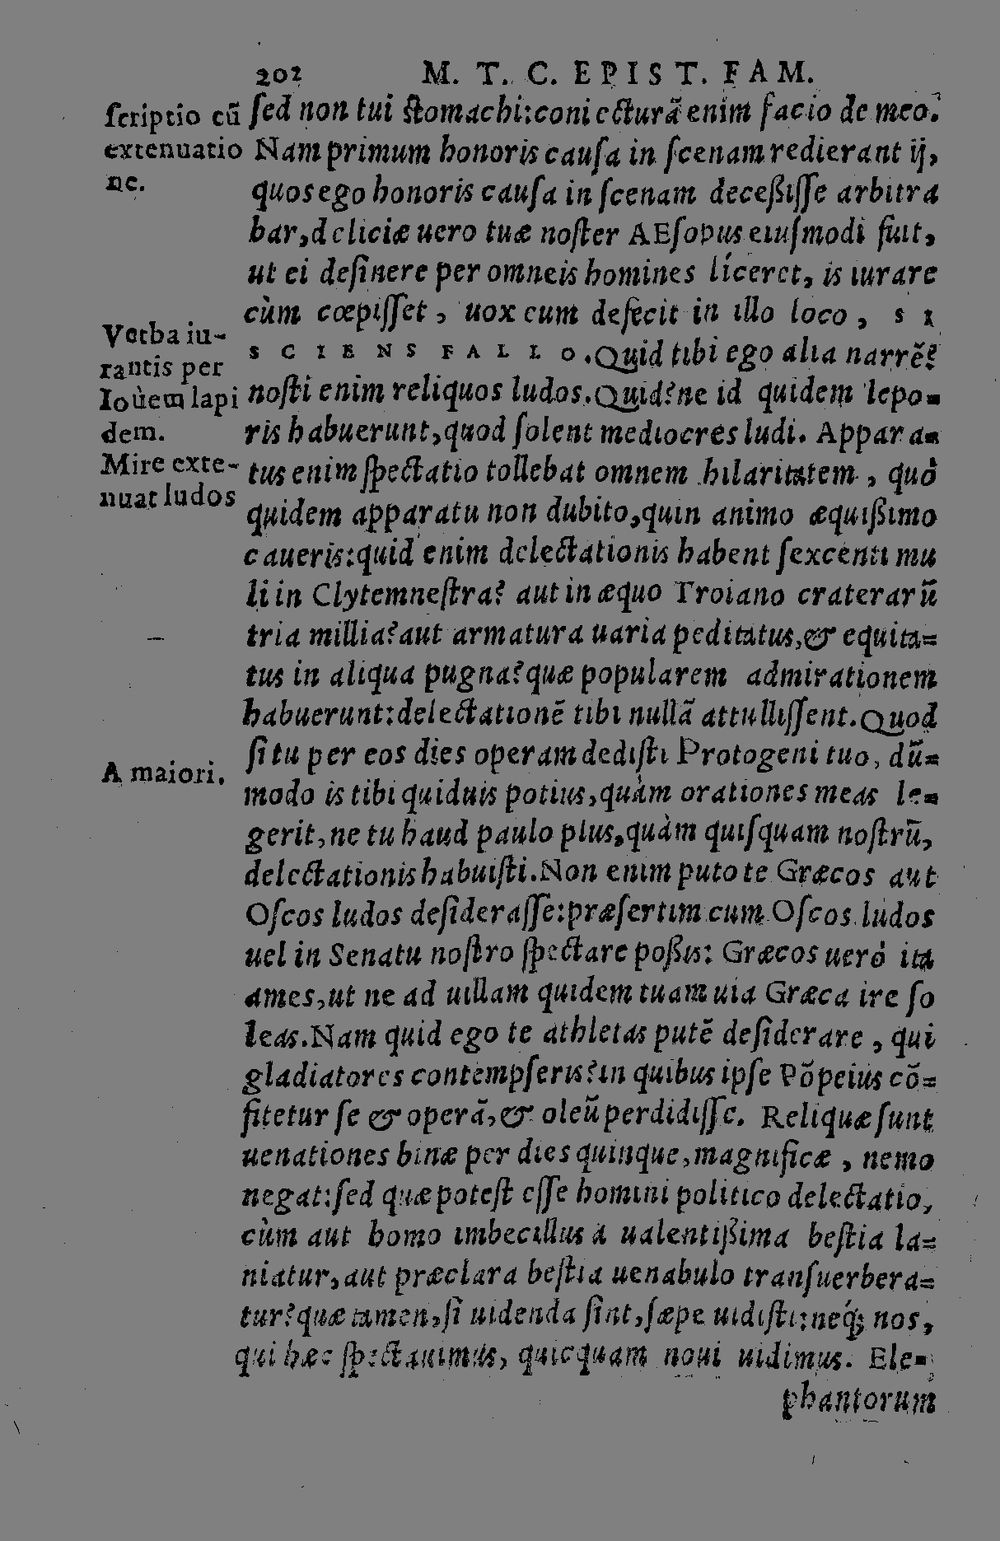 202 M. T. C. EPIST. FAM.
scriptio cū
extenuatio
ne.
sed non tui stomachi:coniecturā enim facio de meo.
Nam primum honoris causa in scenam redierant ij,
quos ego honoris causa in scenam deceßisse arbitra
bar,deliciæ uero tuæ noster AEsopus eiusmodi fuit,
ut ei desinere per omneis homines liceret, is iurare
cùm cœpisset, uox eum defecit in illo loco, SI
SCIENS FALLO. Quid tibi ego alia narrē?
Verba iu-
rantis per
Iouem lapi
dem.
Mire exte-
nuat ludos
nosti enim reliquos ludos. Quid?ne id quidem lepo-
ris habuerunt,quod solent mediocres ludi. Appara-
tus enim spectatio tollebat omnem hilaritatem, quò
quidem apparatu non dubito,quin animo æquißimo
caueris:quid enim delectationis habent sexcenti mu
li in Clytemnestra? aut in æquo Troiano craterarū
tria millia?aut armatura uaria peditatus,& equita=
tus in aliqua pugna?quæ popularem admirationem
habuerunt:delectationē tibi nullā attullissent. Quod
si tu per eos dies operam dedisti Protogeni tuo, dū=
A maiori.
modo is tibi quiduis potius,quàm orationes meas le-
gerit,ne tu haud paulo plus,quàm quisquam nostrū,
delectationis habuisti. Non enim puto te Græcos aut
Oscos ludos desiderasse:præsertim cum Oscos ludos
uel in Senatu nostro spectare poßis: Græcos uerò ita
ames,ut ne ad uillam quidem tuam uia Græca ire so
leas. Nam quid ego te athletas putē desiderare, qui
gladiatores contempseris?in quibus ipse Pōpeius cō=
fitetur se & operā,& oleū perdidisse. Reliquæ sunt
uenationes binæ per dies quinque,magnificæ, nemo
negat:sed quæ potest esse homini politico delectatio,
cùm aut homo imbecillus à ualentißima bestia la=
niatur,aut præclara bestia uenabulo transuerbera=
tur?quæ tamen,si uidenda sint,sæpe uidisti:neq́; nos,
qui hæc spectauimus, quicquam noui uidimus. Ele-
phantorum